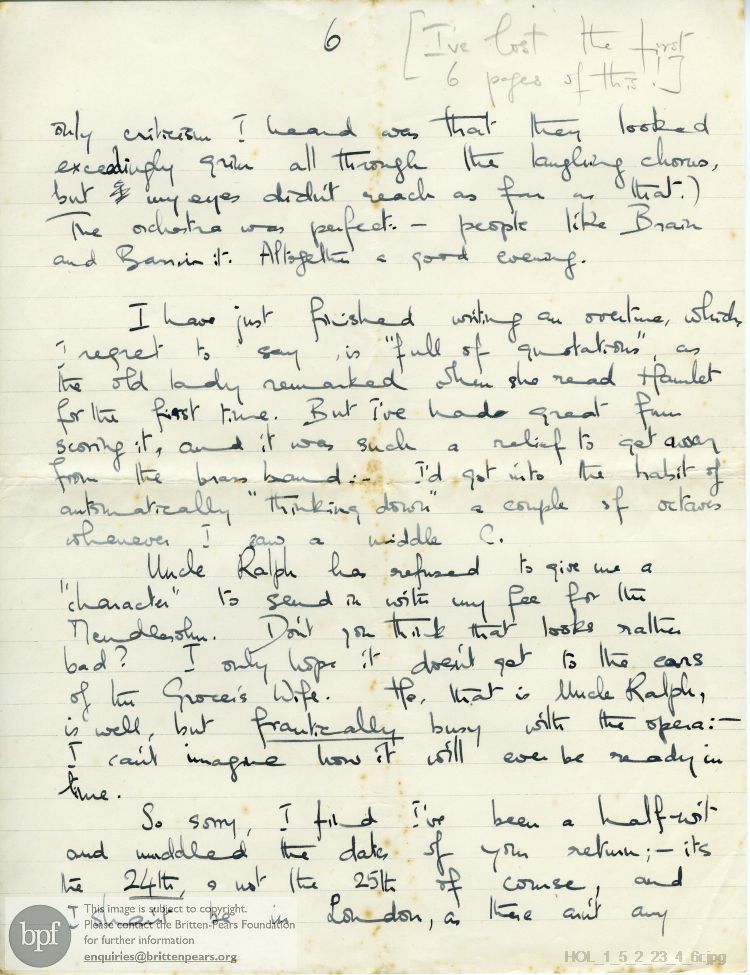 6
[I've lost the first
6 pages of this!]
only criticism I heard was that they looked
exceedingly grim all through the laughing chorus,
but my eyes didn't reach as far as that.)
The orchestra was perfect :- people like Brain
and in it. Altogether a good evening.
I have just finished writing an overture, which
I regret to say, is "full of quotations", as
the old lady remarked when she read Hamlet
for the first time. But I've had great fun
scoring it, and it was such a relief to get away
from the brass band :- I'd got into the habit of
automatically "thinking down" a couple of octaves
whenever I saw a middle C.
Uncle Ralph has refused to give me a
"character" to send in with my fee for the
Mendlesohn. Don't you think that looks rather
bad? I only hope it doesn't get to the ears
of the Grocer's Wife. He, that is Uncle Ralph,
is well, but frantically busy with the opera :-
I can't imagine how it will ever be ready in
time.
So sorry, I find I've been a half-wit
and muddled the dates of your return ;- its
the 24th, & not the 25th of course, and
I shan't be in London, as there ain't any
bpf
This image is subject to copyright.
Please contact the Britten-Pears Foundation
for further information
enquiries@brittenpears.org
HOL_1_5_2_23_4_6r.jpg